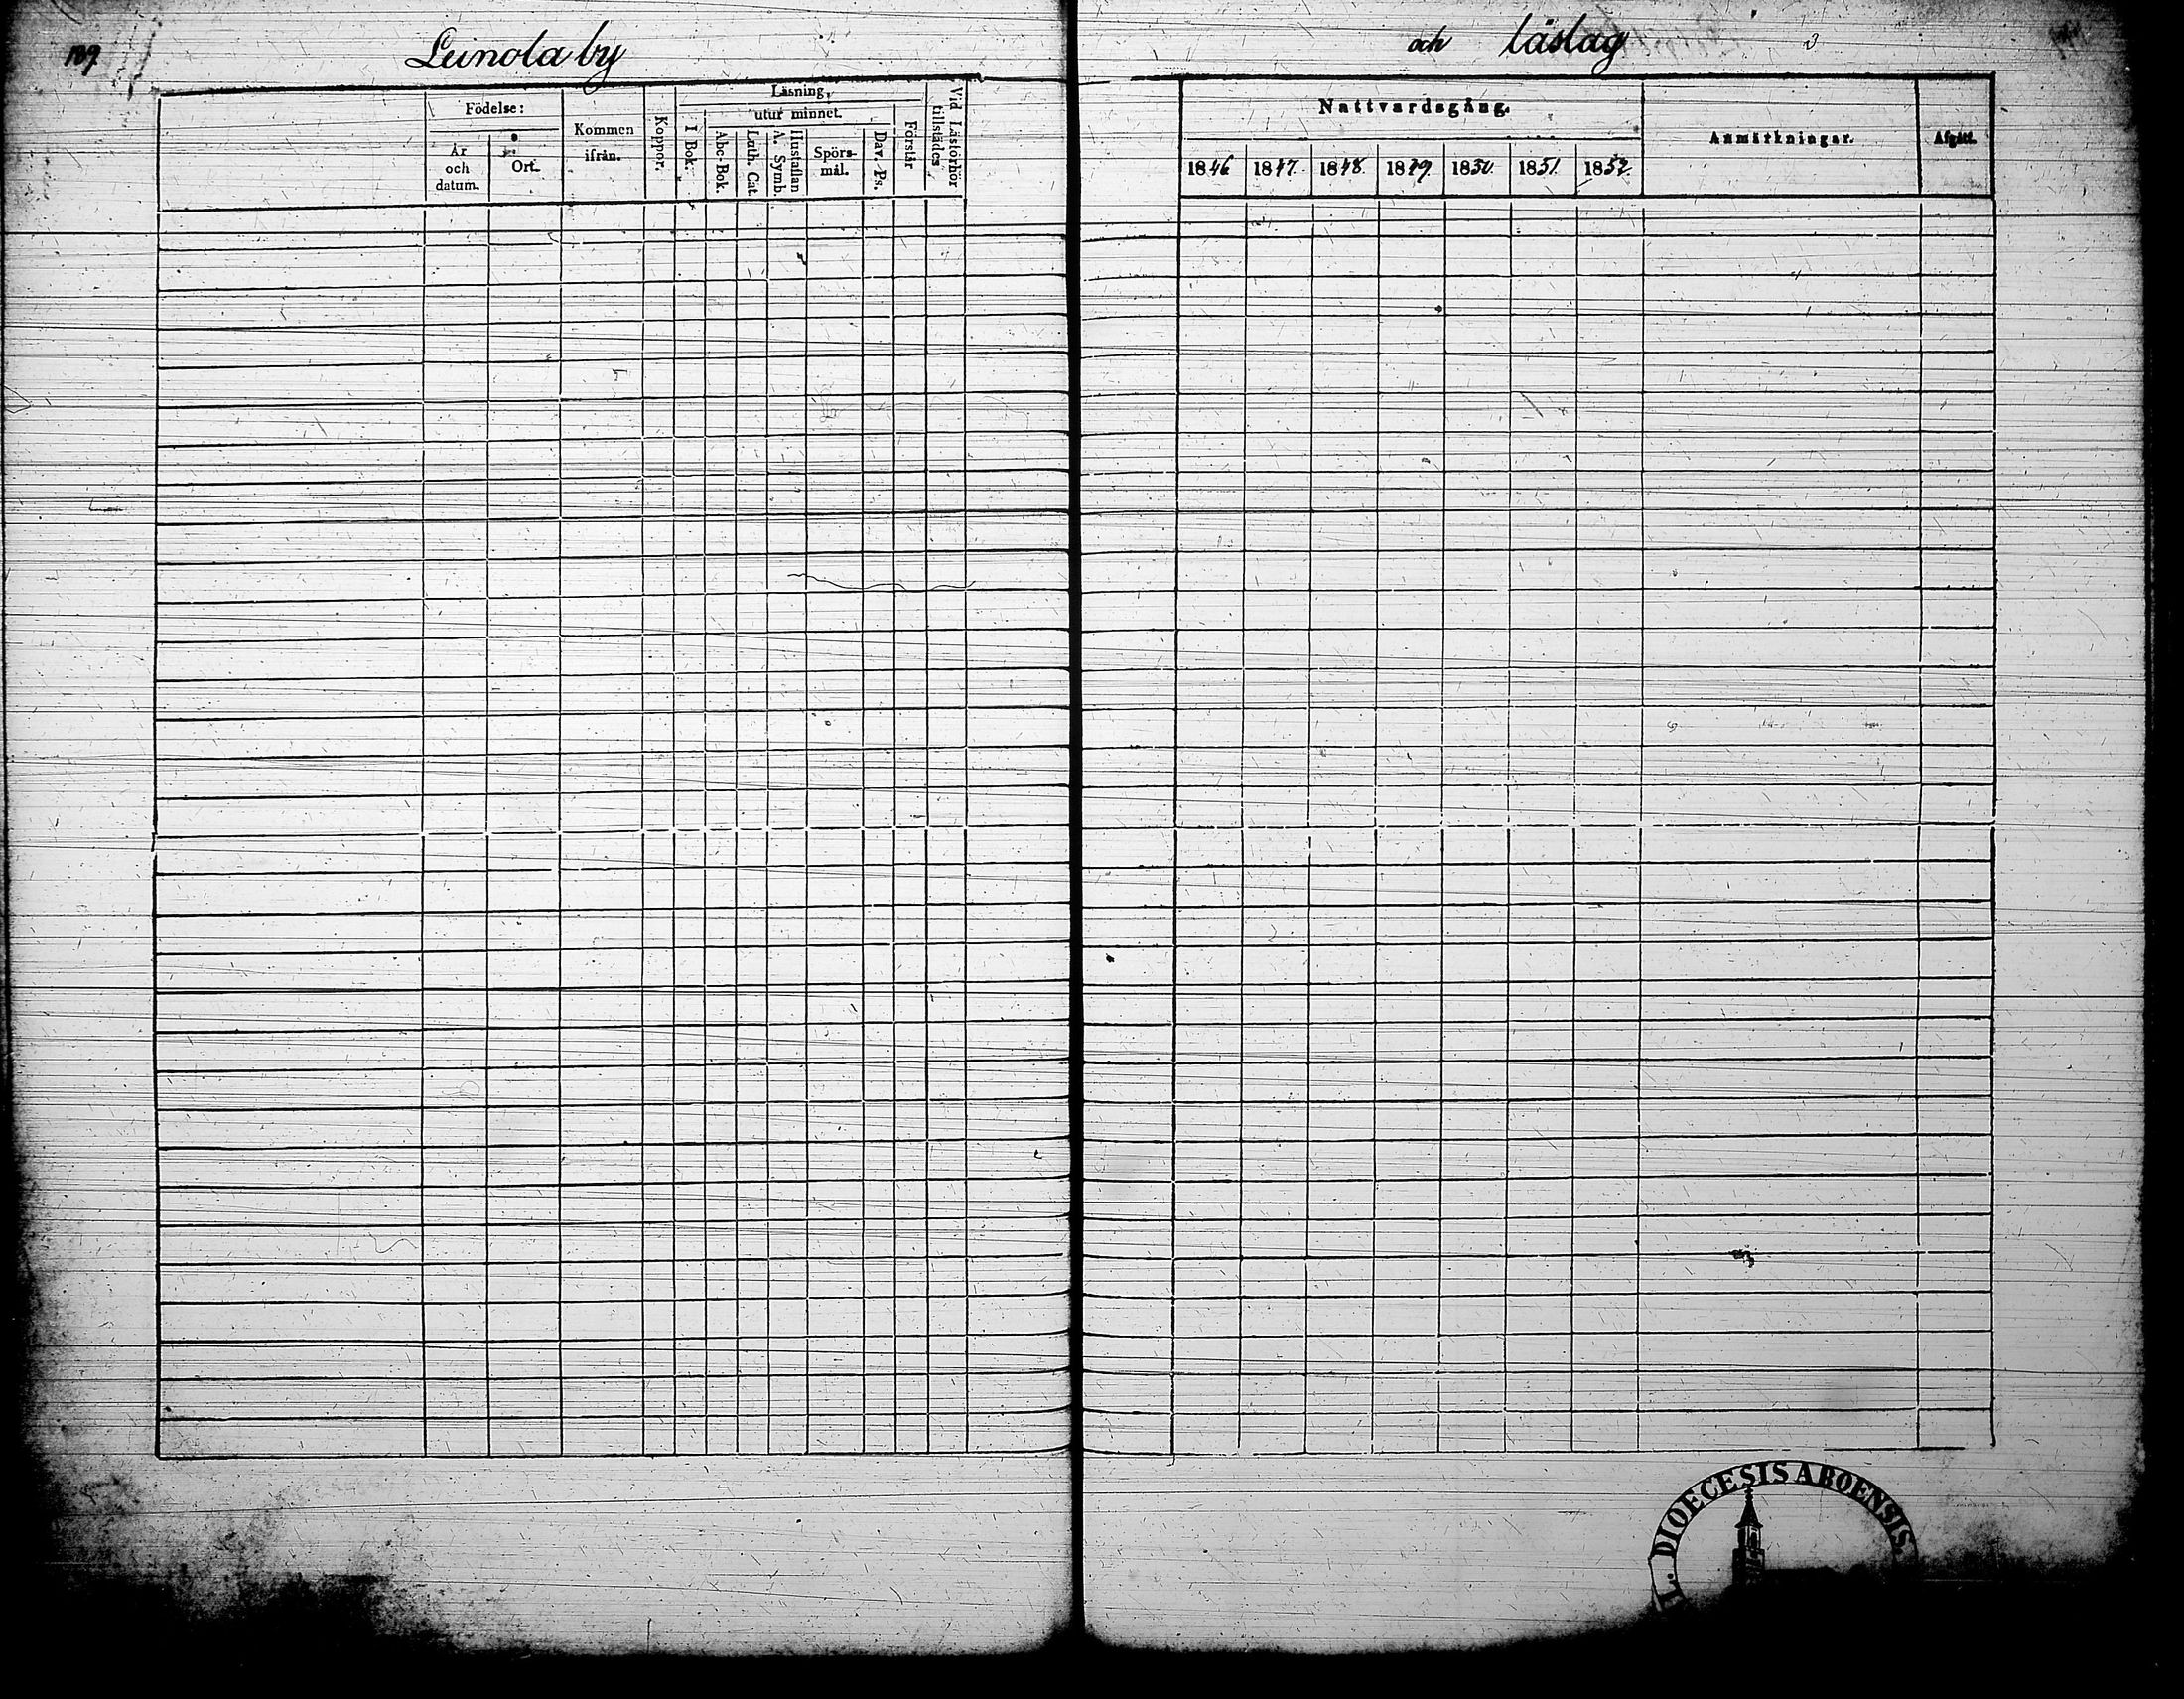 109
Leinola by
och läslag
Födelse:
År
och
datum.
Ort.
Kommen
ifrån.
Koppor.
Läsning,
utur minnet.
I Bok.
Abc-Bok
Luth. Cat.
Hustaflan
A. Symb.
Spörs-
mål.
Dav. Ps.
Förstår
Vid Läsförhör
tillstädes
Nattvardsgång.
1846 1847. 1848. 1849. 1850. 1851. 1852.
Anmärkningar.
Afgått.
L. DIOECESIS ABOENSIS.